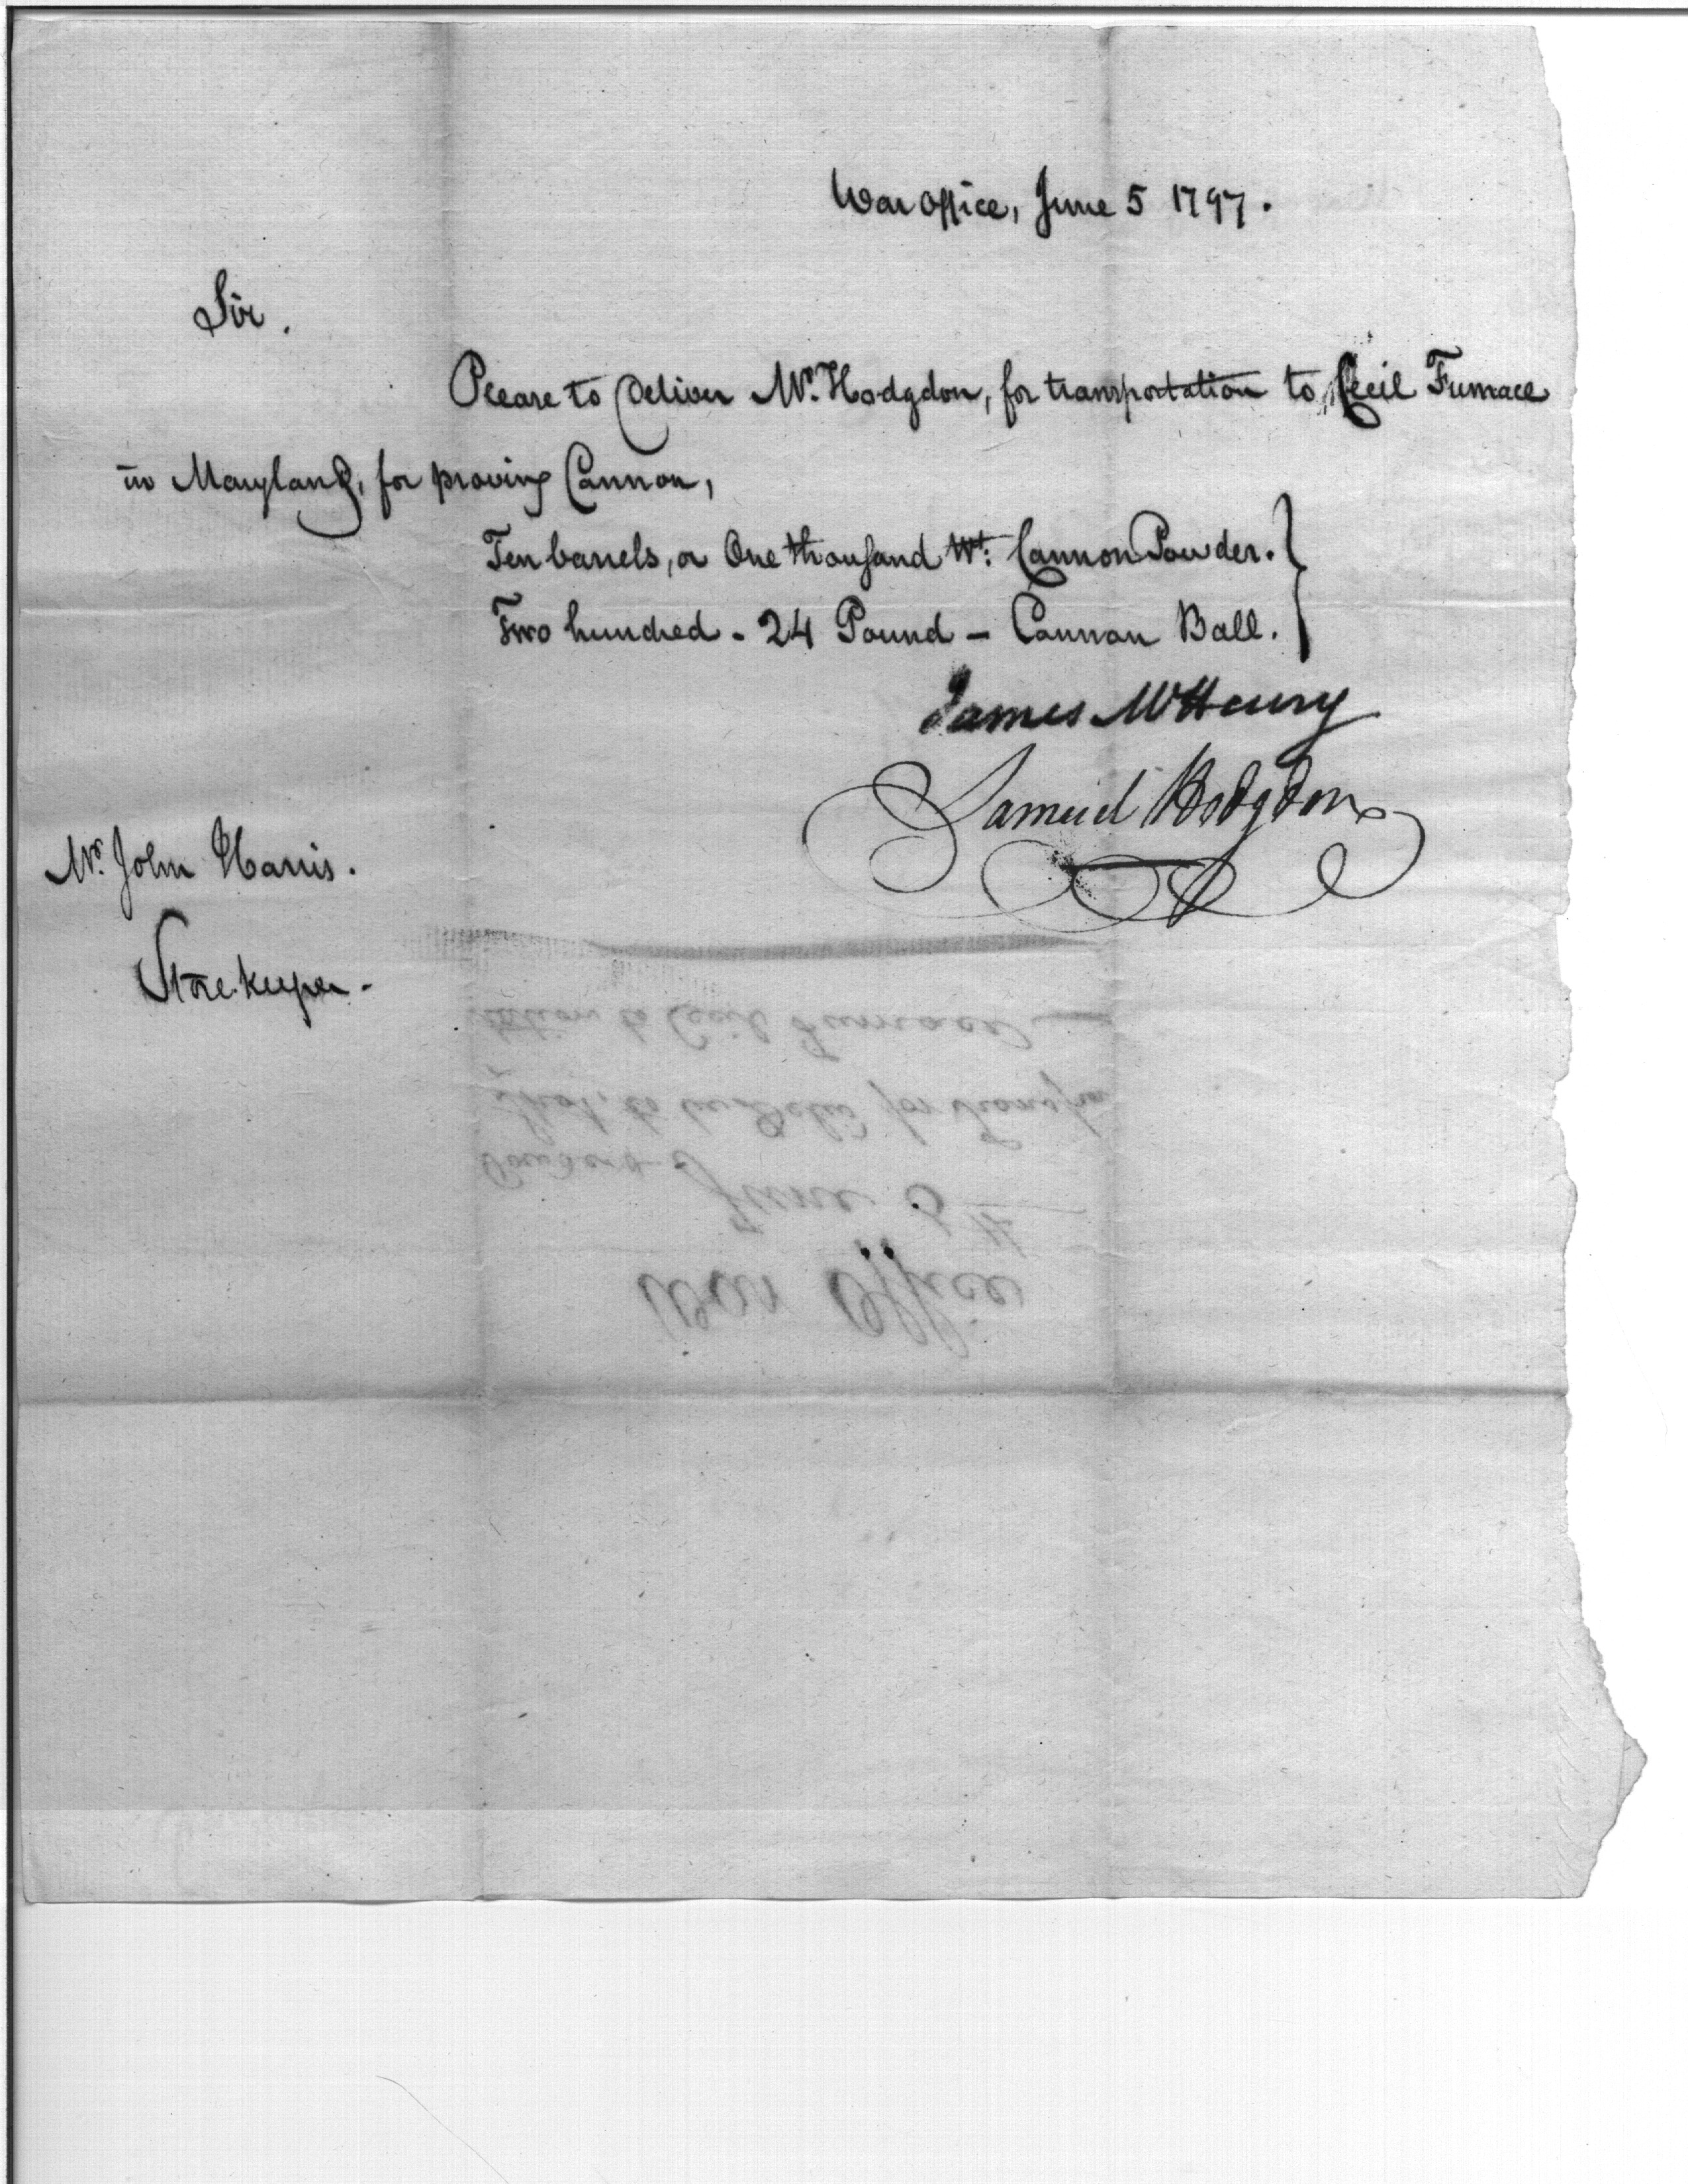 War Office, June 5 1797.
Sir.
Please to Deliver Mr. Hodgdon, for transportation to Cecil Furnace
in Maryland, for proving Cannon,
Ten barrels, or One thousand Wt: Cannon Powder.
Two hundred - 24 Pound - Cannon Ball.
James McHenry
Samuel Hodgdon
Mr. John Harris.
Storekeeper.
War Office
June 5
Powder &
Shot, to be Deld for Transpor
tation to Cecil Furnace